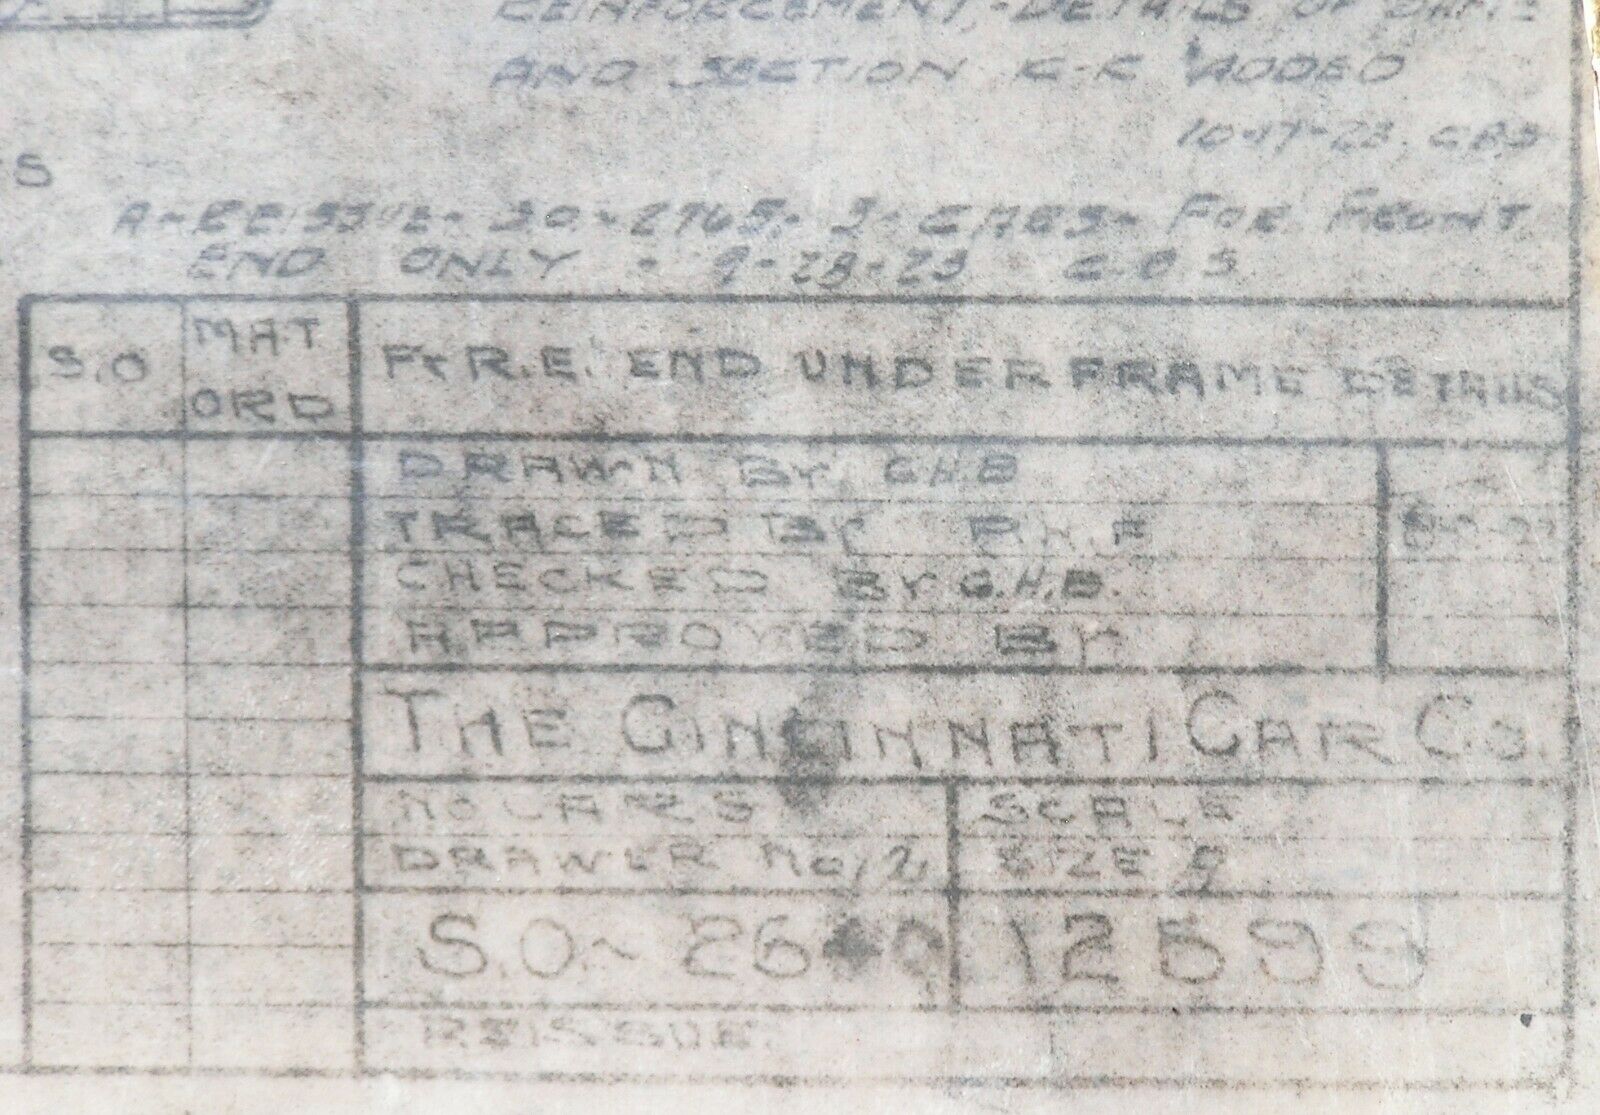 REINFORCEMENT, - DETAILS OF
AND SECTION K-K ADDED
10-17-23, C.B.S
S
A - - 3 - CARS - FOR FRONT
END ONLY - 9-28-23 C.B.S
S.O
MAT
ORD
Ft R.E. END UNDERFRAME DETAILS
DRAWN BY G.H.B
TRACED BY R.H.F
CHECKED BY G.H.B.
APPROVED BY
THE CINCINNATI CAR CO.
NO CARS
SCALE
DRAWER NO 12
SIZE 9
S.O. ~ 26
12599
REISSUE